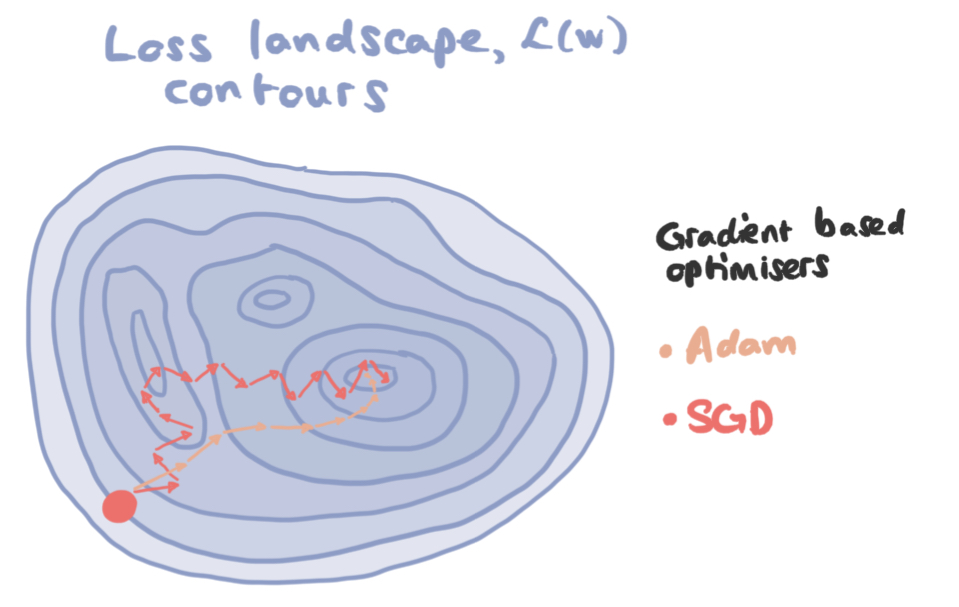 Loss landscape, ℒ(w)
contours
Gradient based
optimisers
• Adam
• SGD